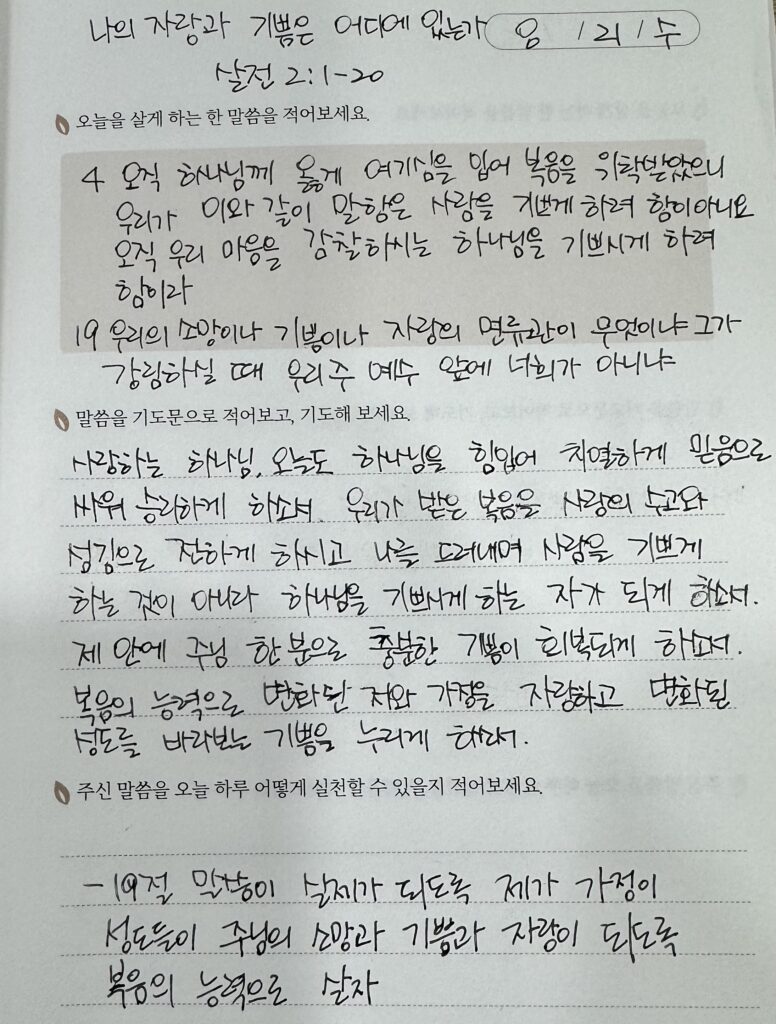 나의 자랑과 기쁨은 어디에 있는가 (오 / 21 / 수)
살전 2:1-20
오늘을 살게 하는 한 말씀을 적어보세요.
4 오직 하나님께 옳게 여기심을 입어 복음을 위탁받았으니
우리가 이와 같이 말함은 사람을 기쁘게 하려 함이 아니요
오직 우리 마음을 감찰하시는 하나님을 기쁘시게 하려
함이라
19 우리의 소망이나 기쁨이나 자랑의 면류관이 무엇이냐 그가
강림하실 때 우리 주 예수 앞에 너희가 아니냐
말씀을 기도문으로 적어보고, 기도해 보세요.
사랑하는 하나님, 오늘도 하나님을 힘입어 치열하게 믿음으로
싸워 승리하게 하소서. 우리가 받은 복음을 사랑의 수고와
섬김으로 전하게 하시고 나를 드러내며 사람을 기쁘게
하는 것이 아니라 하나님을 기쁘시게 하는 자가 되게 하소서.
제 안에 주님 한 분으로 충분한 기쁨이 회복되게 하소서.
복음의 능력으로 변화된 저와 가정을 자랑하고 변화된
성도를 바라보는 기쁨을 누리게 하소서.
주신 말씀을 오늘 하루 어떻게 실천할 수 있을지 적어보세요.
- 19절 말씀이 실제가 되도록 제가 가정이
성도들이 주님의 소망과 기쁨과 자랑이 되도록
복음의 능력으로 살자